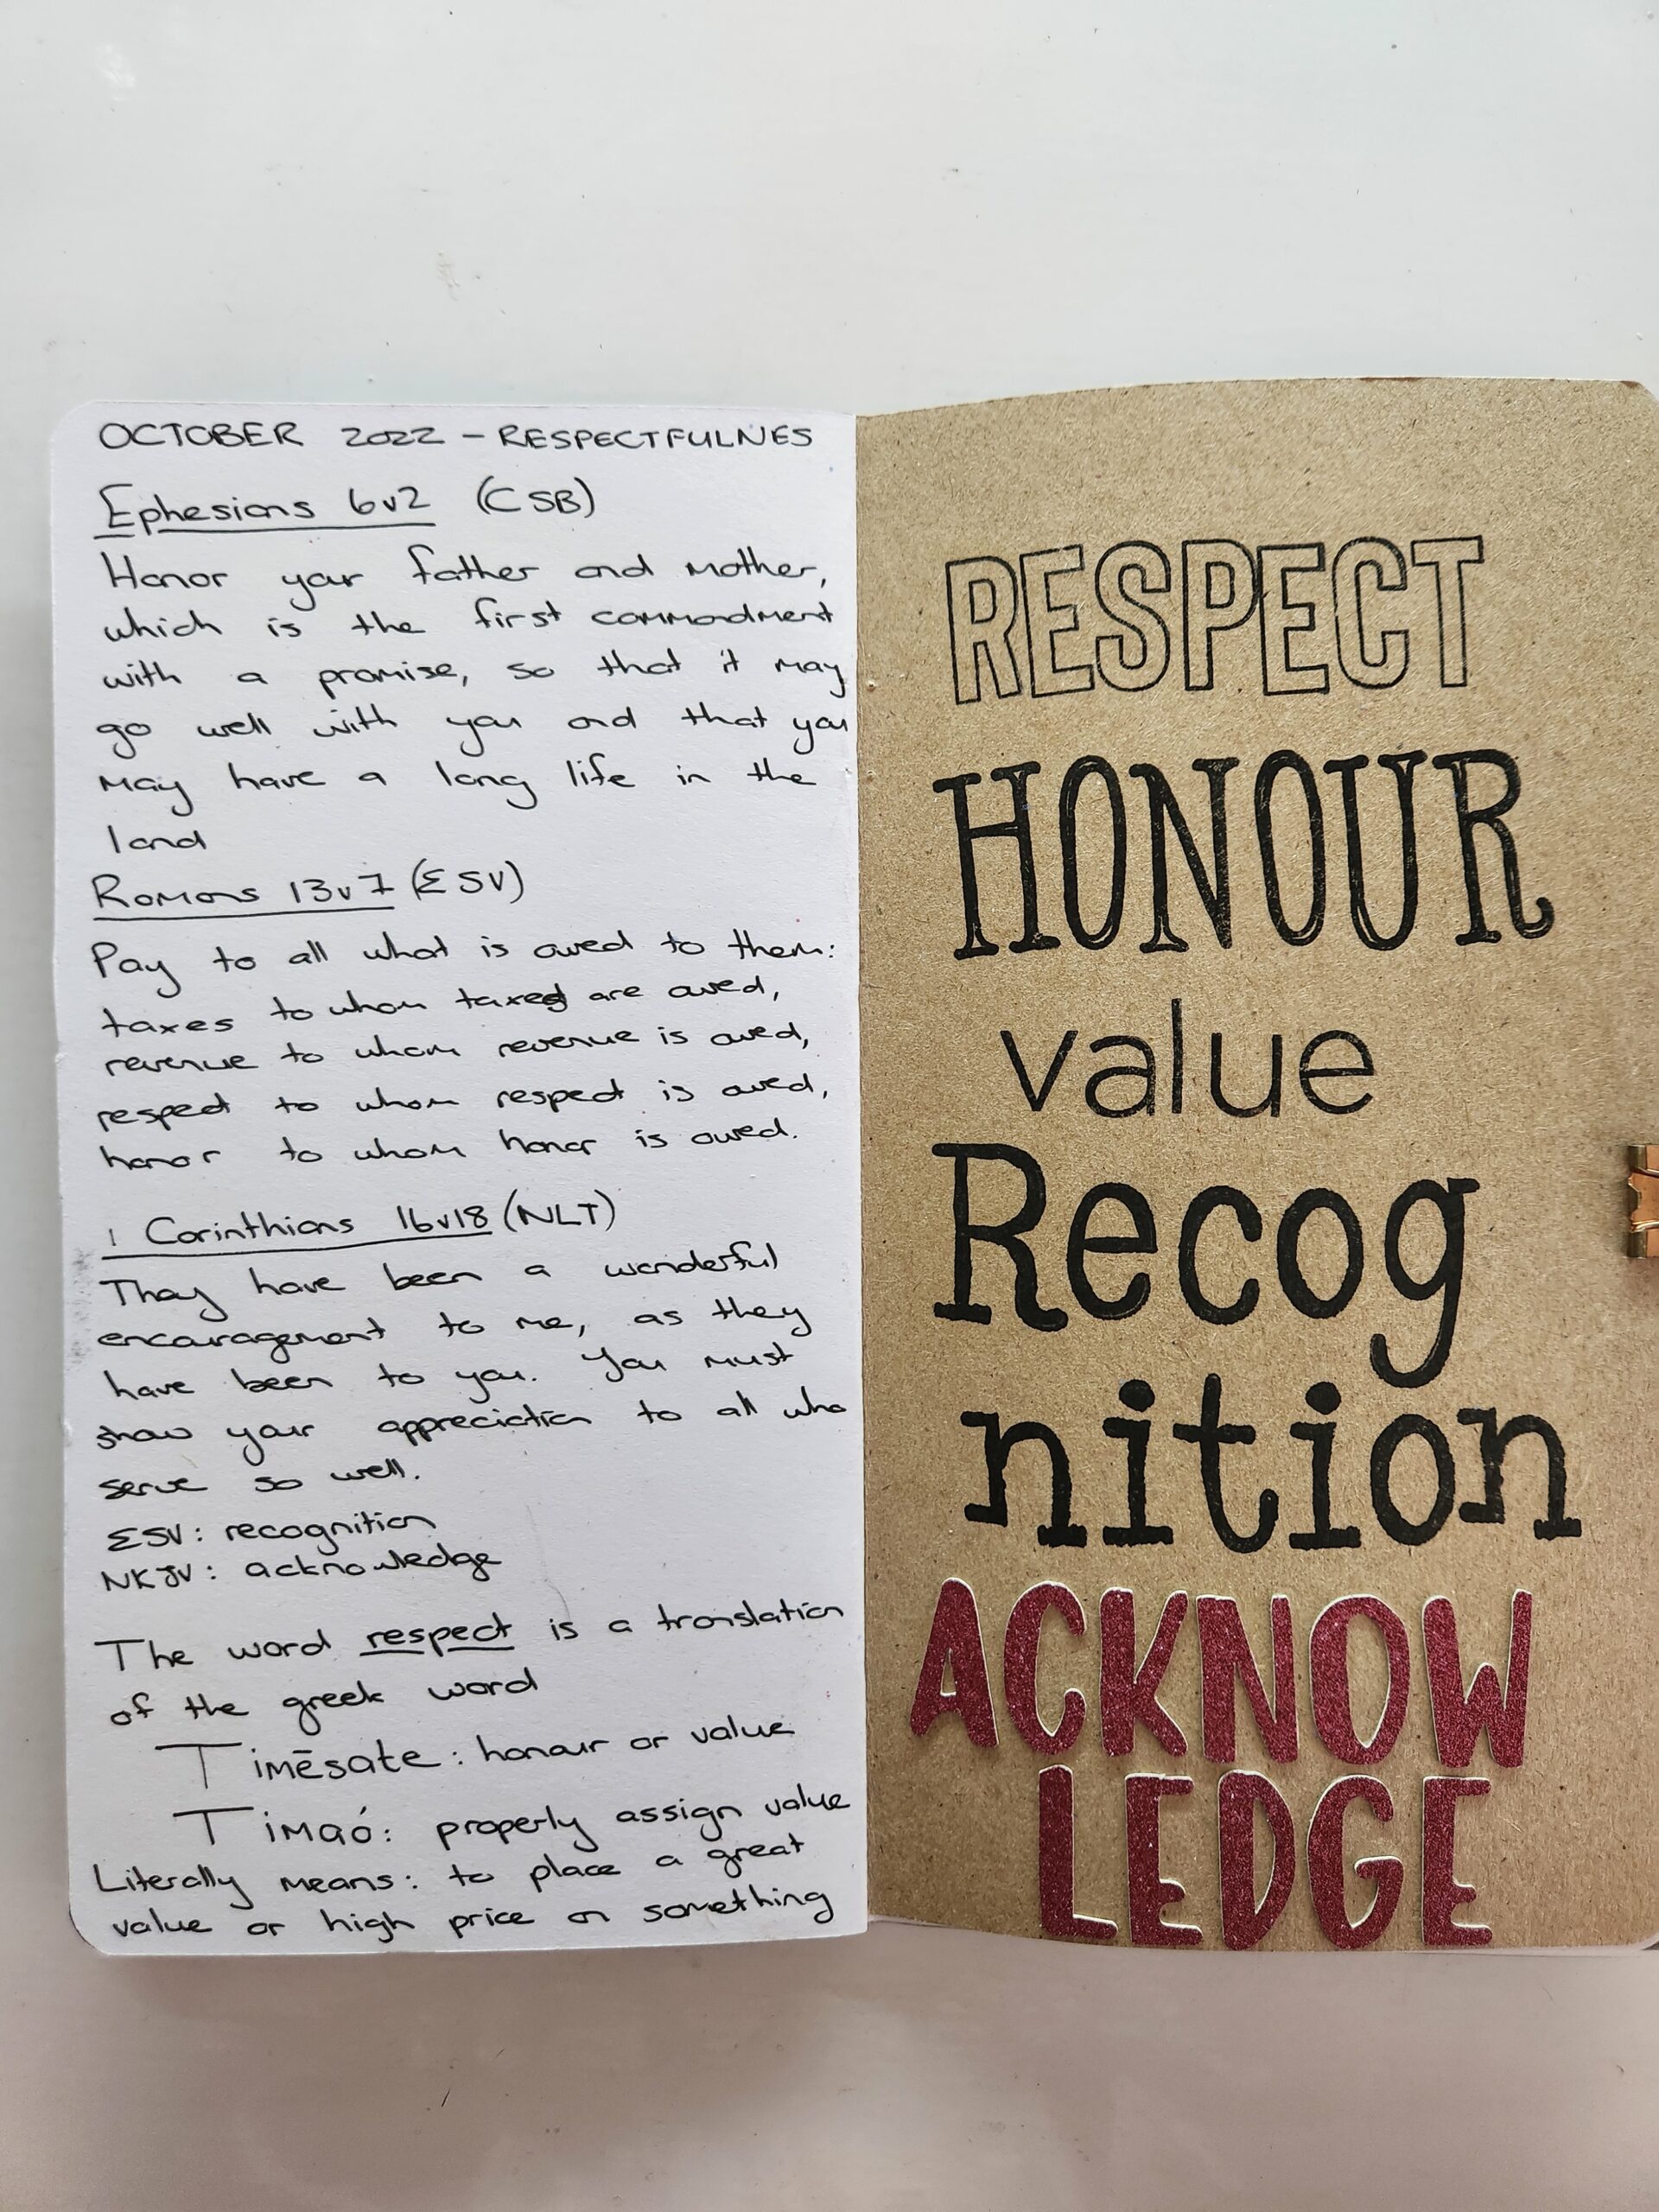 OCTOBER 2022 - RESPECTFULNES
Ephesians 6v2 (CSB)
Honor your father and mother,
which is the first commandment
with a promise, so that it may
go well with you and that you
may have a long life in the
land
Romans 13v7 (ESV)
Pay to all what is owed to them:
taxes to whom taxes are owed,
revenue to whom revenue is owed,
respect to whom respect is owed,
honor to whom honor is owed.
1 Corinthians 16v18 (NLT)
They have been a wonderful
encouragement to me, as they
have been to you. You must
show your appreciation to all who
serve so well.
ESV: recognition
NKJV: acknowledge
The word respect is a translation
of the greek word
Timēsate: honour or value
Timaó: properly assign value
Literally means: to place a great
value or high price on something
RESPECT
HONOUR
value
Recog
nition
ACKNOW
LEDGE